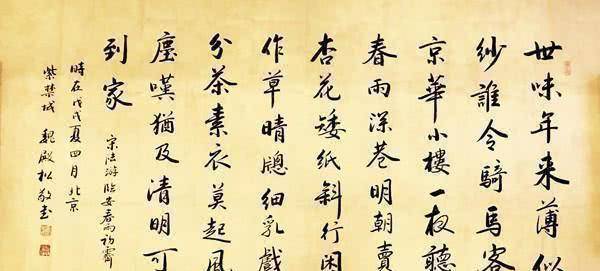 世味年来薄似
紗誰令騎馬客
京華小樓一夜聽
春雨深巷明朝賣
杏花矮紙斜行闲
作草晴牕細乳戲
分茶素衣莫起風
塵嘆猶及清明可
到家
宋陸游臨安春雨初霽
時在戊戌夏四月北京
紫禁城 魏殿松敬書